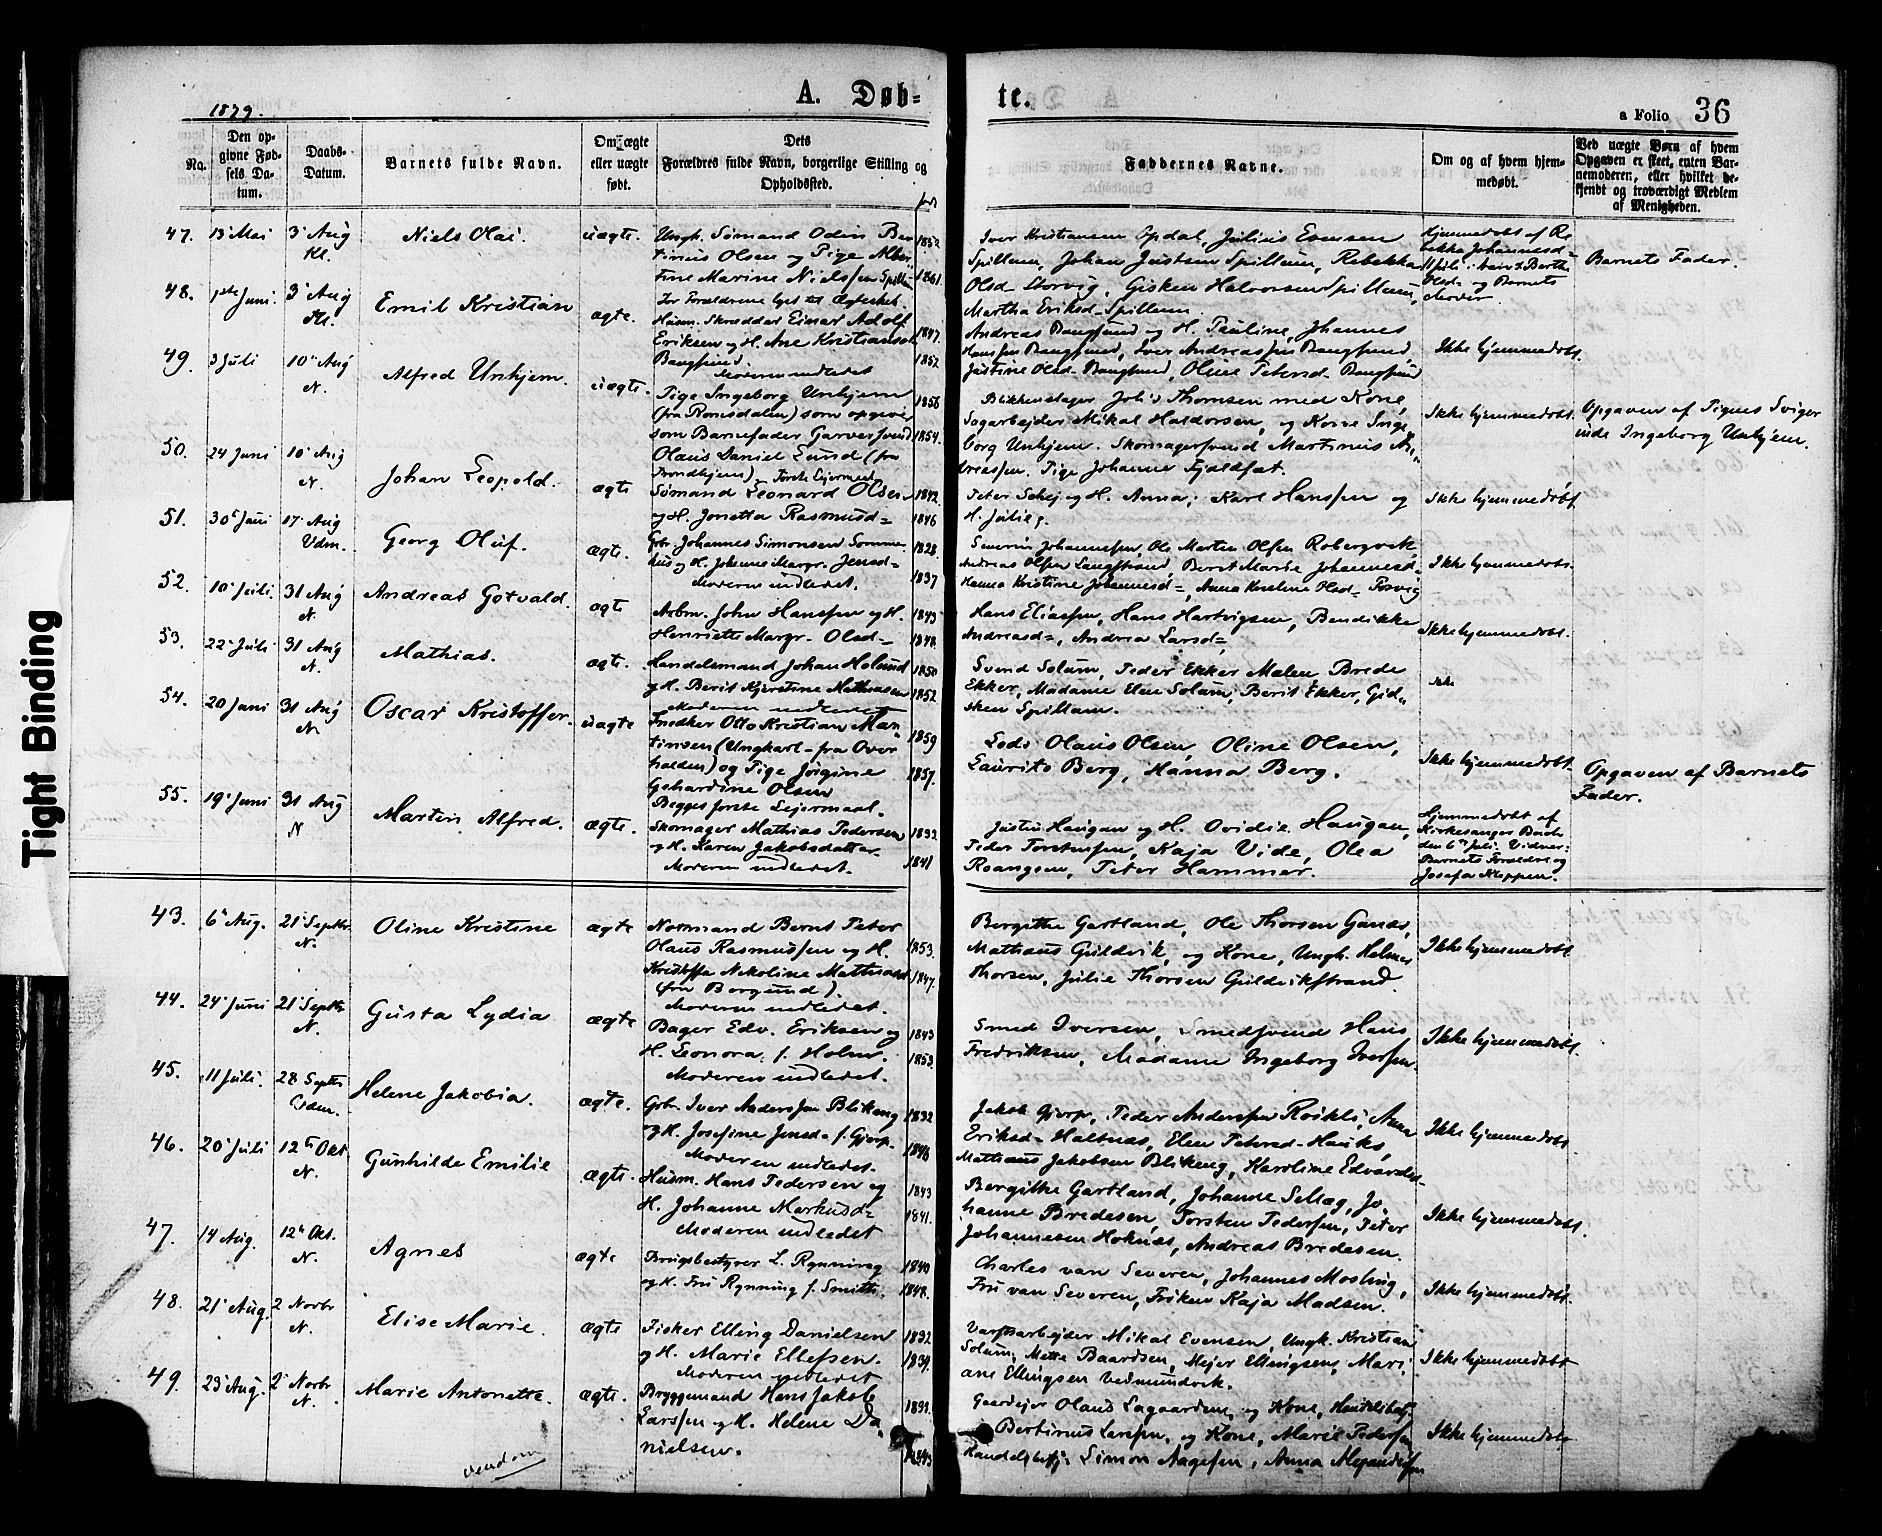 1879.
A. Døb=
te.
a Folio 36
No.
Den op-
givne Fød-
sels Da-
tum.
Daabs-
Datum.
Barnets fulde Navn.
Om ægte
eller uægte
født.
Dets
Forældres fulde Navn, borgerlige Stilling og
Opholdssted.
Faddernes Navne.
Om og af hvem hjem-
medøbt.
Ved uægte Børn af hvem
Opgaven er skeet, enten Bar-
nemoderen, eller hvilket be-
kjendt og troværdigt Medlem
af Menigheden.
47. 13 Mai 3 Aug
Kl.
Niels Olai. uægte.
Ungk. Sømand Odin Ber
tinus Olsen og Pige Alber
tine Marine Nielssen Spillu
1861.
Iver Kristiansen Opdal, Julius Evensen
Spillum, Johan Justsen Spillum, Rebekka
Olsd- Storvig, Gisken Halvorsen Spillum,
Martha Eriksd- Spillum
Hjemmedøbt af Re
bekka Johannesd
Barnets Fader.
48. 1ste Juni. 3 Aug
Kl.
Emil Kristian ægte.
Husm. Skrædder Einar Adolf
Eriksen og H. Ane Kristiansd.
Bangsund.
Moderen indledet
1847.
1852.
Andreas Bangsund og H. Pauline, Johannes
Hanssen Bangsund, Iver Andreassen Bangsund,
Justine Olsd- Bangsund, Oline Petersd- Bangsund
Ikke hjemmedøbt.
49. 3 Juli 10 Aug
N.
Alfred Unhjem. uægte.
Pige Ingeborg Unhjem
(fra Romsdalen) som opgiver
som Barnefader Garversvend
Olaus Daniel Lund (fra
Trondhjem). Første Leiermaal
1856
1854.
Blikkenslager Johs Thomsen med Kone,
Sagarbejder Mikal Haldorsen, og Kone Inge
borg Unhjem. Skomagersvend Martinus An
dreassen. Pige Johanne Fjeldsæt.
Ikke hjemmedøbt.
Opgaven af Pigens Sviger
inde Ingeborg Unhjem.
50. 24 Juni 10 Aug
N.
Johan Leopold. ægte
Sømand Leonard Olsen
og H. Jonetta Rasmusd=
1842.
1846
Peter Schej og H. Anna; Karl Hanssen og
H. Julie.
Ikke hjemmedøbt
51. 30 Juni 17 Aug
Vdm.
Georg Oluf. ægte.
Gbr. Johannes Simonsen Somme
hus og H. Johanne Margr. Jensd=
Moderen indledet.
1828.
1837
Severin Johannessen, Ole Martin Olsen Robergvek,
Andreas Olsen Langstrand, Berit Marie Johannesd,
Hanna Kristine Johannesd=, Anna Kristine Olsd- Torvig
Ikke hjemmedøbt.
52. 10 Juli. 31 Aug
N.
Andreas Gotvald. ægte
Arbm. John Hanssen og H.
Henriette Margr. Olsd=
1843
1848.
Hans Eliassen, Hans Hartvigsen, Bendikke
Andreasd=, Andrea Larsd=,
Ikke hjemmedøbt.
53. 22 Juli 31 Aug
N.
Mathias. ægte.
Handelsmand Johan Holund
og H. Berit Kjerstine Mathiasen
Moderen indledet
1850
1852.
Svend Solum, Peder Ekker Malen Brede
Ekker, Madame Elen Solum, Berit Ekker, Gid„
sken Spillum.
ikke
54. 20 Juni 31 Aug
N.
Oscar Kristoffer. uægte
Snedker Otto Kristian Mar
tinsen (Ungkarl- fra Over
halden) og Pige Jørgine
Gehardine Olsen
Begges første Leiermaal.
1859
1857.
Lods Olaus Olsen, Oline Olsen,
Laurits Berg, Hanna Berg.
Ikke hjemmedøbt.
Opgaven af Barnets
Fader.
55. 19 Juni 31 Aug
N
Martin Alfred. ægte.
Skomager Mathias Pedersen
og H. Karen Jakobsdatter.
Moderen indledet.
1832
1841
Justin Haugan og H. Ovidie Haugan,
Peder Torstensen, Kaja Vide, Olea
Roangsen, Peter Hammer.
Hjemmedøbt af
Kirkesanger
den 6te Juli. Vidner:
Barnets Forældre og
Josefa Kleppen.
43. 6 Aug. 21 Septbr.
N.
Oline Kristine ægte
Nordmand Bernt Peter
Olaus Rasmussen og H.
Kristoffa Nekoline Mathiasd
(fra Borgund).
Moderen indledet.
1853.
1847.
Bergithe Gartland, Ole Thorsen Ganes,
Mathæus Guldvik, og Kone, Ungk. Helmer
Thorsen, Julie Thorsen Guldvikstrand.
Ikke hjemmedøbt.
44. 24 Juni 21 Septbr
N.
Gusta Lydia ægte
Bager Edv. Eriksen og
H. Leonora f. Holm.
Moderen indledet.
1843
1853.
Smed Iversen, Smedsvend Hans
Fredriksen, Madame Ingeborg Iversen.
Ikke hjemmedøbt.
45. 11 Juli. 28 Septbr
Vdm.
Helene Jakobia. ægte.
Gbr. Iver Anderssen Blikeng
og H. Josefine Jensd= f. Gjørp.
Moderen indledet.
1832
1848
Jakob Gjørp, Peder Anderssen Rosikli, Anne
Eriksd- Haltnæs, Elen Petersd- Hauks,
Mathæus Jakobsen Blikeng, Karoline Edvardsd-
Ikke hjemmedøbt
46. 20 Juli 12te Okt
N.
Gunhilde Emilie ægte.
Husm. Hans Pedersen og
H. Johanne Markusd=
Moderen indledet
1843
1841.
Bergithe Gartland, Johanne Selleg, Jo„
hanne Bredesen, Torsten Pedersen, Peter
Johannesen Hoknæs, Andreas Bredesen.
Ikke hjemmedøbt.
47. 14 Aug. 12te Okt.
N.
Agnes ægte
Brugsbestyrer L. Rynning
og H. Fru Rynning f. Smith.
1840
1848.
Charles van Severen, Johannes Mosling,
Fru van Severen, Frøken Kaja Madsen.
Ikke hjemmedøbt.
48. 21 Aug. 2 Novbr
N.
Elise Marie. ægte
Fisker Elling Danielsen
og H. Marie Ellefsen.
Moderen indledet
1832
1839.
Værftsarbejder Mikal Evensen, Ungk. Kristian
Solum, Mette Baardsen, Mejer Ellingsen, Mari
ane Ellingsen Vedmundvik.
Ikke hjemmedøbt
49. 23 Aug. 2 Novbr
N.
Marie Antonette. ægte.
Bryggemand Hans Jakob
Larssen og H. Helene Da
nielsen.
1843
Gaardejer Olaus Lagaarden, og Kone, Handelsbetj.
Bertinus Larssen, og Kone, Marie Pedersen
Handelsbetj. Simon Aagesen, Anna
Ikke hjemmedøbt
vendom
Tight Binding